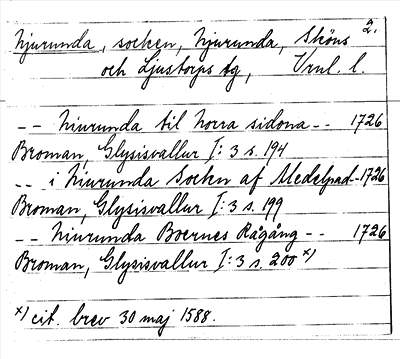 2.
Njurunda, socken, Njurunda, Sköns
och Ljustorps tg, Vrnl. l.
-- Niurunda til norra sidona -- 1726
Broman, Glysisvallur I:3 s. 194
-- i Niurunda Sockn af Medelpad -- 1726
Broman, Glysisvallur I:3 s. 199
-- Niurunda Boernes Rågång -- 1726
Broman, Glysisvallur I:3 s. 200 x)
x) cit. brev 30 maj 1588.